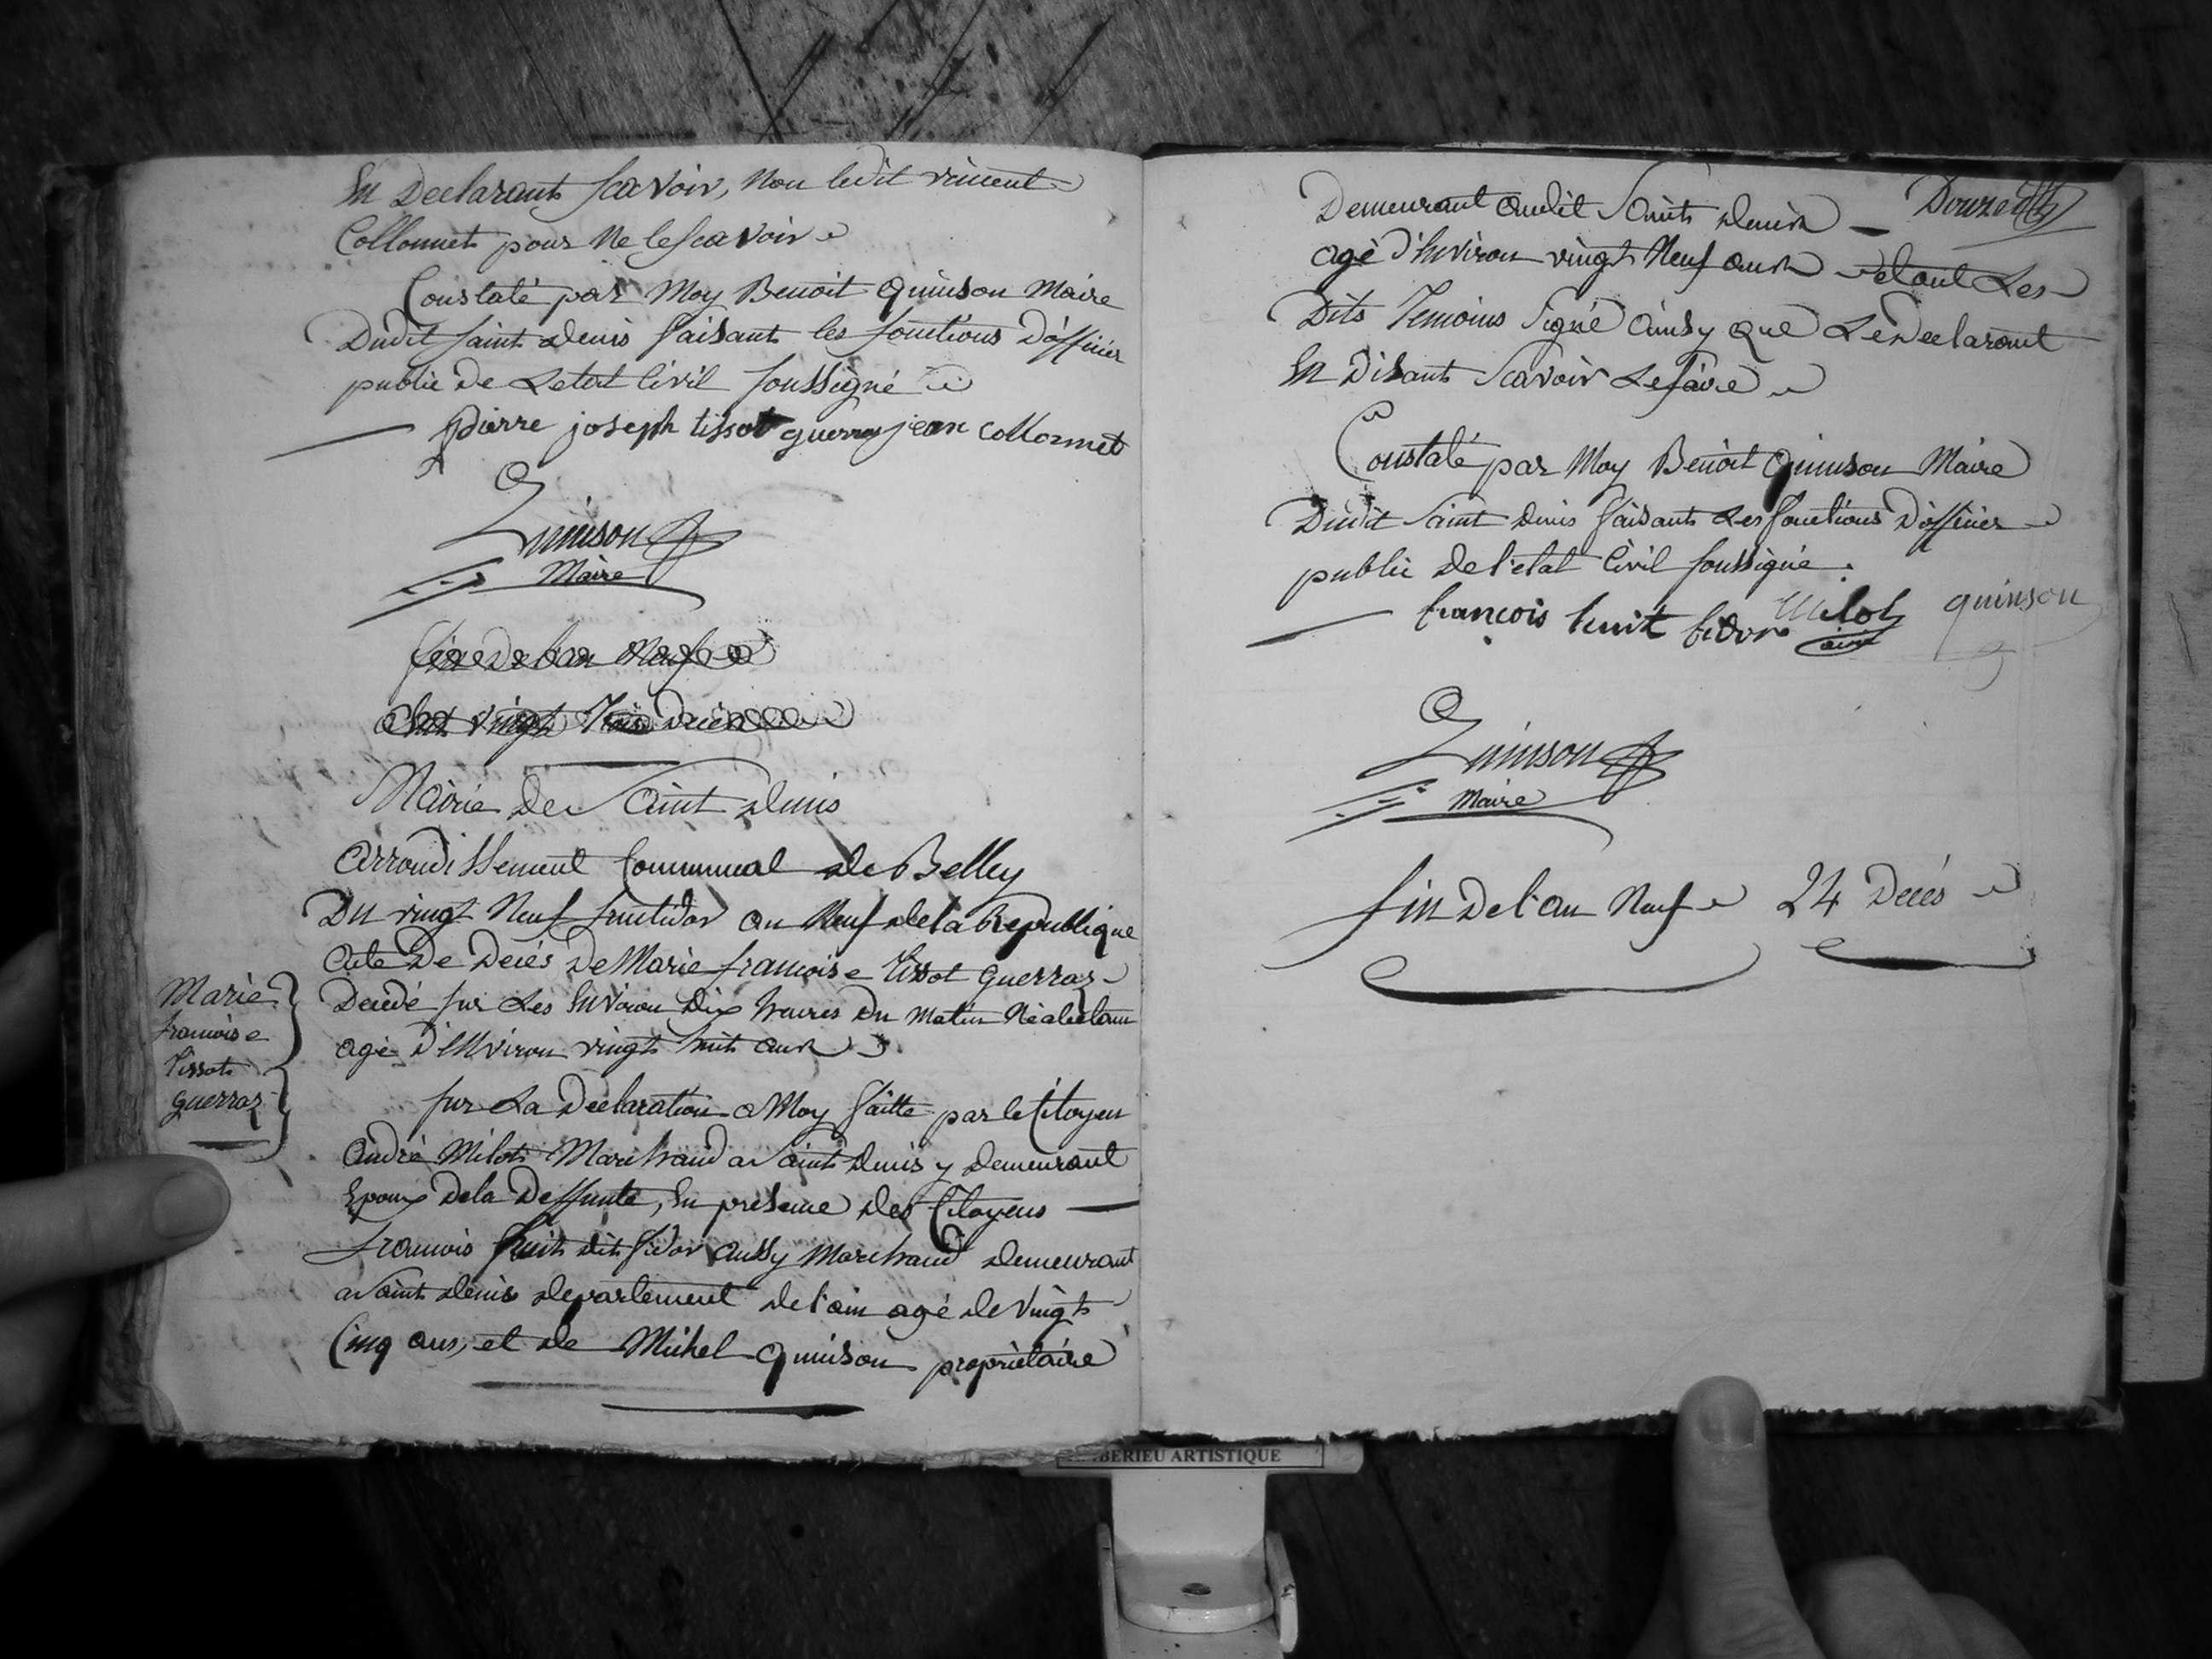 En Declarants scavoir, Non ledit vincent
Collonnet pour Ne le scavoir
Constaté par Moy Benoit Quinson Maire
Dudit saint denis faisant les fonctions D'officier
public De Letat Civil soussigné
pierre joseph tissot guerraz jean collonnet
Quinson
Maire
fin De l'an Neuf
vingt Trois Deces
Mairie De Saint denis
Arrondissement Communal de Belley
Du vingt Neuf fructidor an Neuf de la Republique
Acte De Decés De Marie francoise Tissot Guerraz
Decedé sur Les Environ Dix heures Du Matin Né
agé D'Environ vingt huit ans
Marie
francoise
Tissot
guerraz
sur La Declaration a Moy faitte par le Citoyen
André Milot Marchand a Saint denis y demeurant
Epoux De la Deffunte, En presence des Citoyens
francois huit dit fidor aussy Marchand demeurant
a Saint denis departement de l'ain agé de vingt
Cinq ans, et de Michel Quinson propriétaire
Demeurant audit Saint denis
Douze
agé d'Environ vingt Neuf ans et ont Les
Dits Temoins Signé ainsy que Le Declarant
En Disant Scavoir Le faire
Constaté par Moy Benoit Quinson Maire
Dudit Saint Denis faisant Les fonctions D'officier
public de l'etat Civil soussigné.
francois huit fidor Milot quinson
Quinson
Maire
fin De l'an Neuf 24 Decés
BERIEU ARTISTIQUE